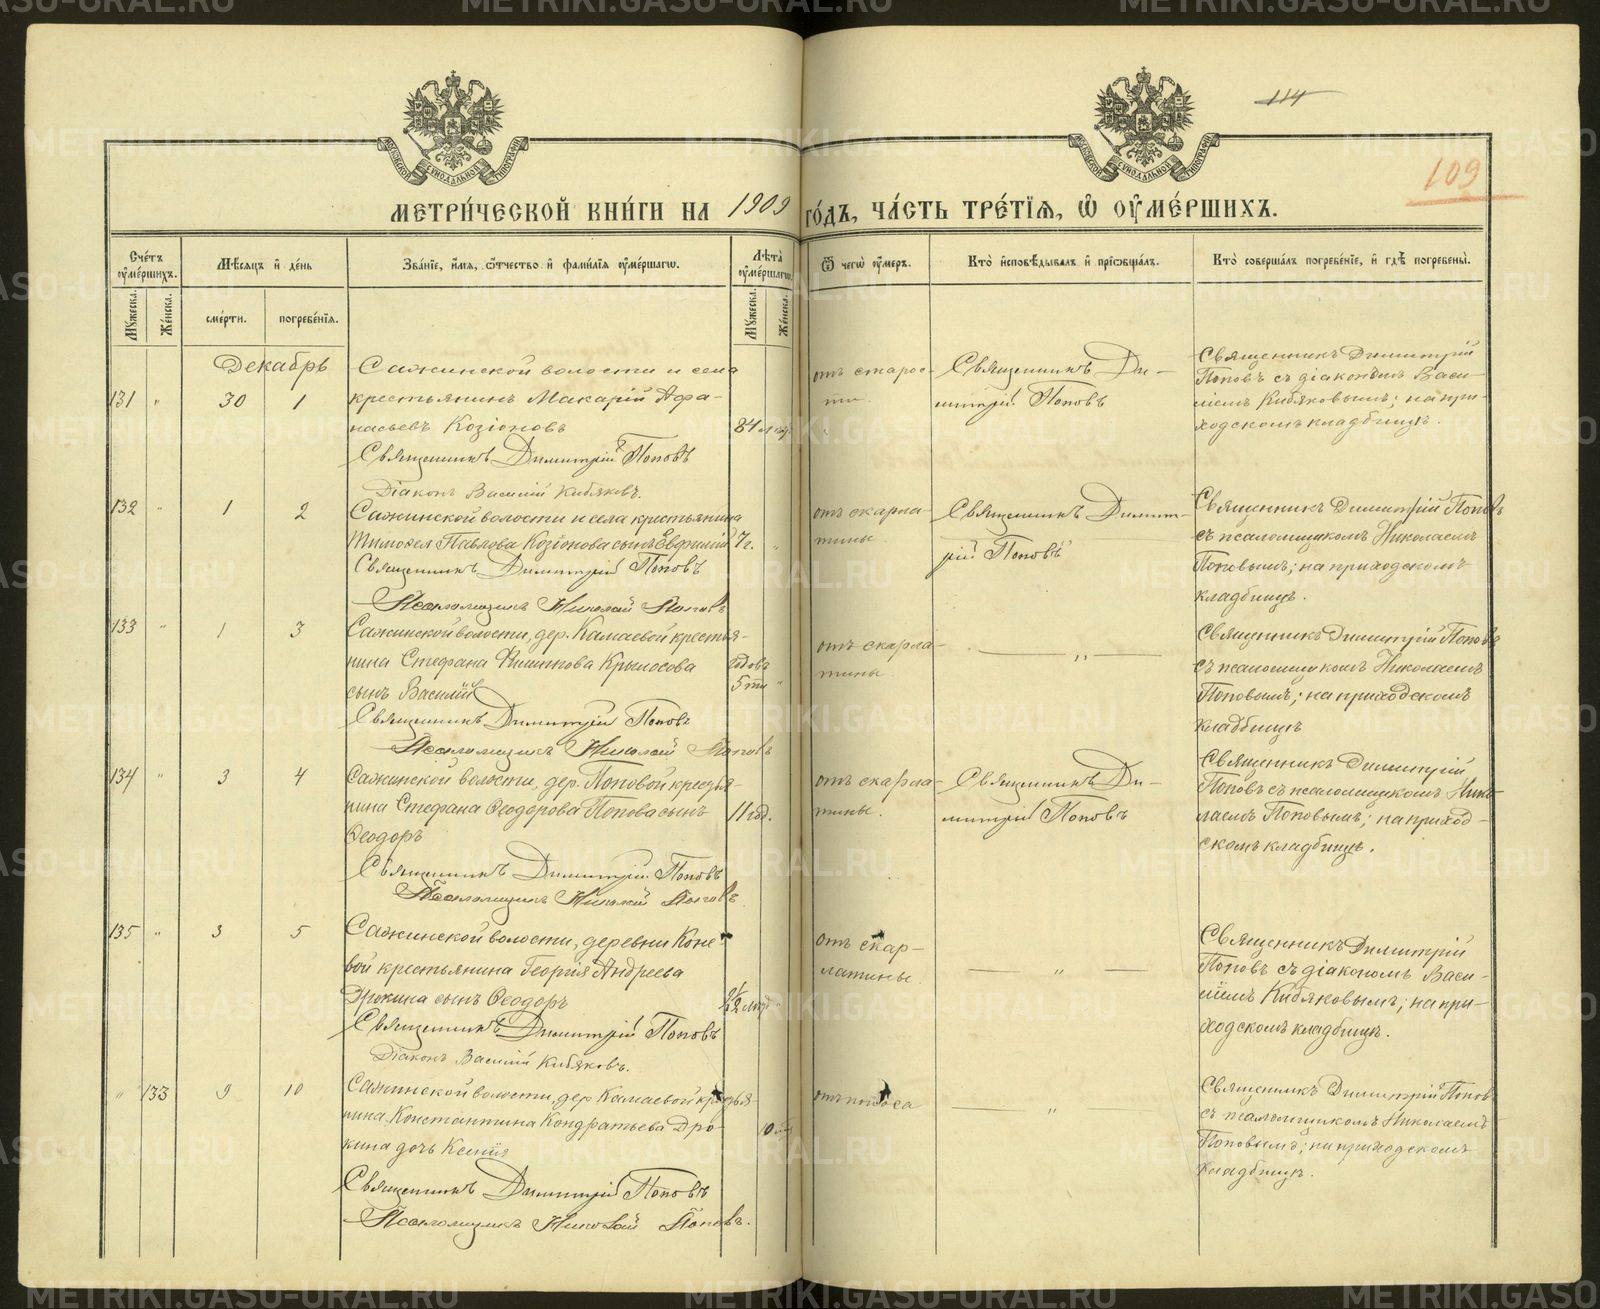 114
109
МЕТРИ́ЧЕСКОЙ КНИ́ГИ НА 1909 ГО́ДЪ, ЧА́СТЬ ТРЕ́ТІѦ, Ѡ ОУМЕ́РШИХЪ.
Сче́тъ оумершихъ.
Мꙋжеска.
Же́нска.
Мѣсѧцъ и де́нь
сме́рти.
погребе́нїѧ.
Зва́нїе, и́мѧ, ѻ́тчество и фамилїѧ оуме́ршагѡ.
Лѣта оуме́ршагѡ.
Мꙋжеска.
Же́нска.
Ѿ чегѡ оу́меръ.
Кто̀ исповѣдывалъ и прїѡбщалъ.
Кто̀ соверша́лъ погребе́нїе, и гдѣ̀ погребены̀.
Декабрь
131 " 30 1
Сажинской волости и села
крестьянинъ Макарій Афа-
насьевъ Козіоновъ
84
Священникъ Димитрій Поповъ
Діаконъ Василій Кибяковъ.
отъ старос-
ти.
Священникъ Ди-
митрій Поповъ
Священникъ Димитрій
Поповъ съ діакономъ Васи-
ліемъ Кибяковымъ; на при-
ходскомъ кладбищѣ.
132 " 1 2
Сажинской волости и села крестьянина
Тимофея Павлова Козіонова сынъ Евфимій
7 г. "
Священникъ Димитрій Поповъ
Псаломщикъ Николай Поповъ
отъ скарла-
тины
Священникъ Димит-
рій Поповъ
Священникъ Димитрій Поповъ
съ псаломщикомъ Николаемъ
Поповымъ; на приходскомъ
кладбищѣ.
133 " 1 3
Сажинской волости, дер. Камаевой крестья-
нина Стефана Никитова Крылосова
сынъ Василій
годовъ
5ти "
Священникъ Димитрій Поповъ
Псаломщикъ Николай Поповъ
отъ скарла-
тины
— " —
Священникъ Димитрій Поповъ
съ псаломщикомъ Николаемъ
Поповымъ; на приходскомъ
кладбищѣ
134 " 3 4
Сажинской волости, дер. Поповой крестья-
нина Стефана Ѳеодорова Попова сынъ
Ѳеодоръ
11 год.
Священникъ Димитрій Поповъ
Псаломщикъ Николай Поповъ
отъ скарла-
тины.
Священникъ Ди-
митрій Поповъ
Священникъ Димитрій
Поповъ съ псаломщикомъ Нико-
лаемъ Поповымъ; на приход-
скомъ кладбищѣ.
135 " 3 5
Сажинской волости, деревни Коне-
вой крестьянина Георгія Андреева
Дрокина сынъ Ѳеодоръ
2½
Священникъ Димитрій Поповъ
Діаконъ Василій Кибяковъ.
отъ скар-
латины.
— " —
Священникъ Димитрій
Поповъ съ діакономъ Васи-
ліемъ Кибяковымъ; на при-
ходскомъ кладбищѣ.
" 133 9 10
Сажинской волости, дер. Камаевой крестья-
нина Константина Кондратьева Дро-
кина дочь Ксенія
10
Священникъ Димитрій Поповъ
Псаломщикъ Николай Поповъ.
отъ поноса
— " —
Священникъ Димитрій Поповъ
съ псаломщикомъ Николаемъ
Поповымъ; на приходскомъ
кладбищѣ.
METRIKI.GASO-URAL.RU